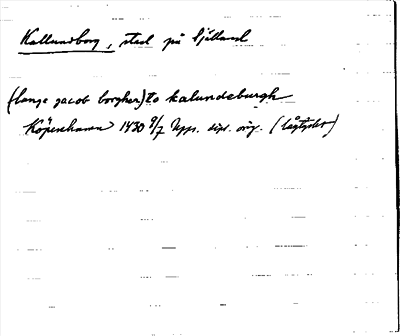 Kallundborg, stad på Själland
(lange jacob borgher) to kalundeburgh
Köpenhamn 1430 9/7 Upps. dipl. orig. (lågtyska)